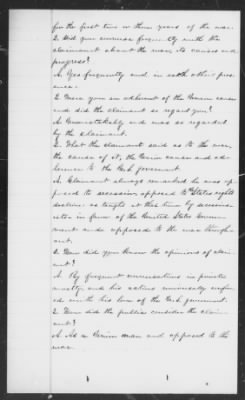 for the first two or three years of the war.
Q. Did you converse frequently with the
claimant about the war, its causes and
progress?
A. Yes frequently and in each other pres-
ence.
Q. Were you an adherent of the Union cause
and did the claimant so regard you?
A. Unmistakably and was so regarded
by the claimant.
Q. What the claimant said as to the war,
the cause of it, the Union cause and ad-
herence to the U.S. government.
A. Claimant always remarked he was op-
posed to secession opposed to the States rights
doctrine as taught at that time by
in favor of the United States Govern-
ment and opposed to the war through-
out.
Q. How did you know the opinions of claim-
ant?
A. By frequent conversations in private
mostly and his actions universally
his love of the U.S. government.
Q. How did the public consider the claim-
ant?
A. As a Union man and opposed to the
war.